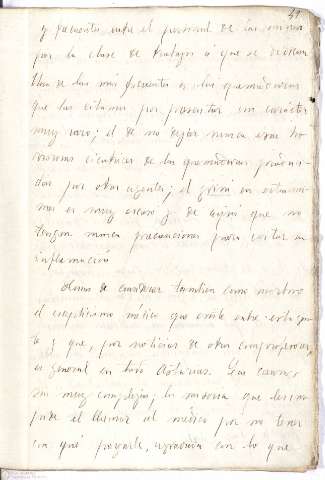 41
y frecuentes entre el personal de las minas
por la clase de trabajos á que se dedican
Una de las más frecuentes es las quemaduras
que las citamos por presentar un carácter
muy raro; el de no dejar nunca esas ho
rrorosas cicatrices de las quemaduras produci-
das por otros agentes; el grisú en estas mi
nas es muy escaso y de aquí que no
tengan nunca precauciones para evitar su
inflamación
de considerar también como morboso
el escepticismo médico que existe entre esta gen
te y que, por noticias de otros compañeros,
es general en toda Asturias. Las causas
son muy complejas, la miseria que les im
pide el llamar al médico por no tener
con qué pagarle, con lo que